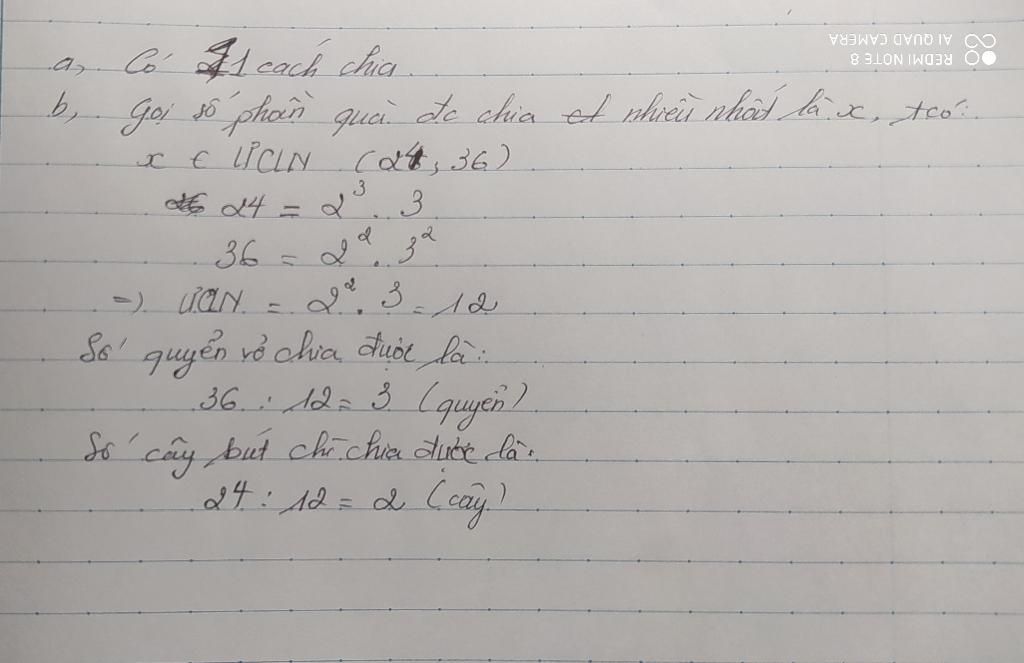 a, Có 1 cách chia
b, Gọi số phần quà đc chia nhiều nhất là x, tcó:
x € ƯCLN (24, 36)
24 = 2³ . 3
36 = 2² . 3²
=) ƯCLN = 2² . 3 = 12
Số quyển vở chia được là:
36 : 12 = 3 (quyển)
Số cây bút chì chia được là:
24 : 12 = 2 (cây)
REDMI NOTE 8
AI QUAD CAMERA